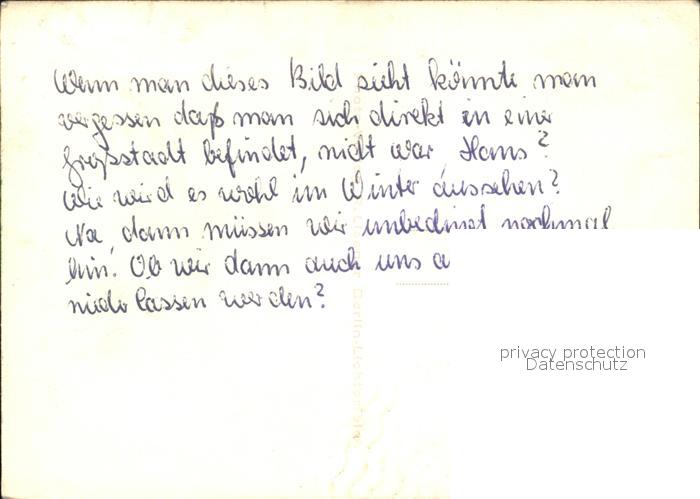 Wenn man dieses Bild sieht könnte man
vergessen daß man sich direkt in einer
Großstadt befindet, nicht war, Hans?
Wie wird es wohl im Winter aussehen?
Na, dann müssen wir unbedingt nochmal
hin. Ob wir dann auch uns
nieder lassen werden?
privacy protection
Datenschutz
Berlin-Lichterfelde